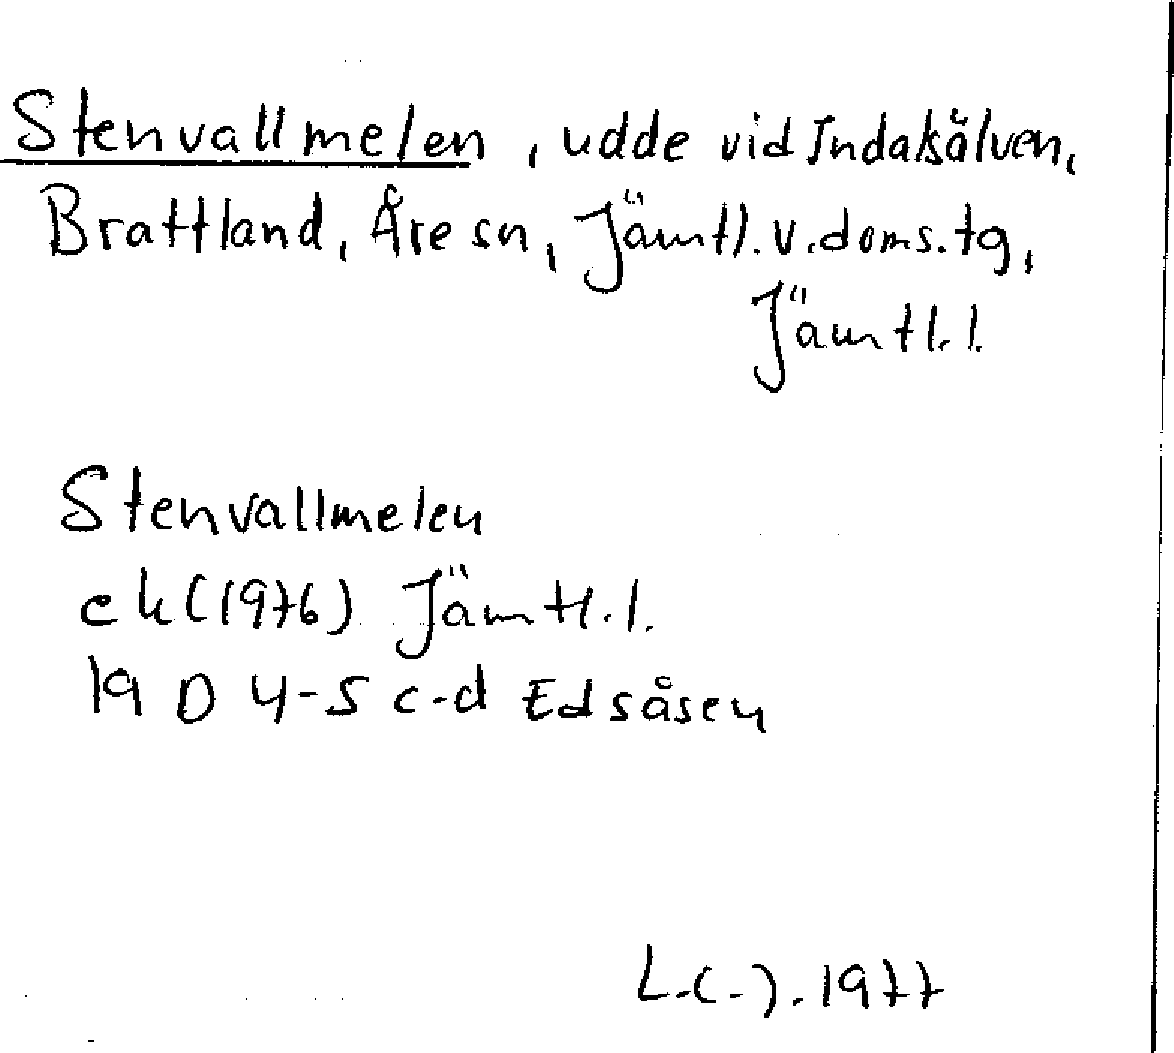 Stenvallmelen, udde vid Indalsälven,
Brattland, Åre sn, Jämtl. v. doms. tg,
Jämtl. l.
Stenvallmelen
ek (1976) Jämtl. l.
19 D 4-5 c-d Edsåsen
L.(-). 1977